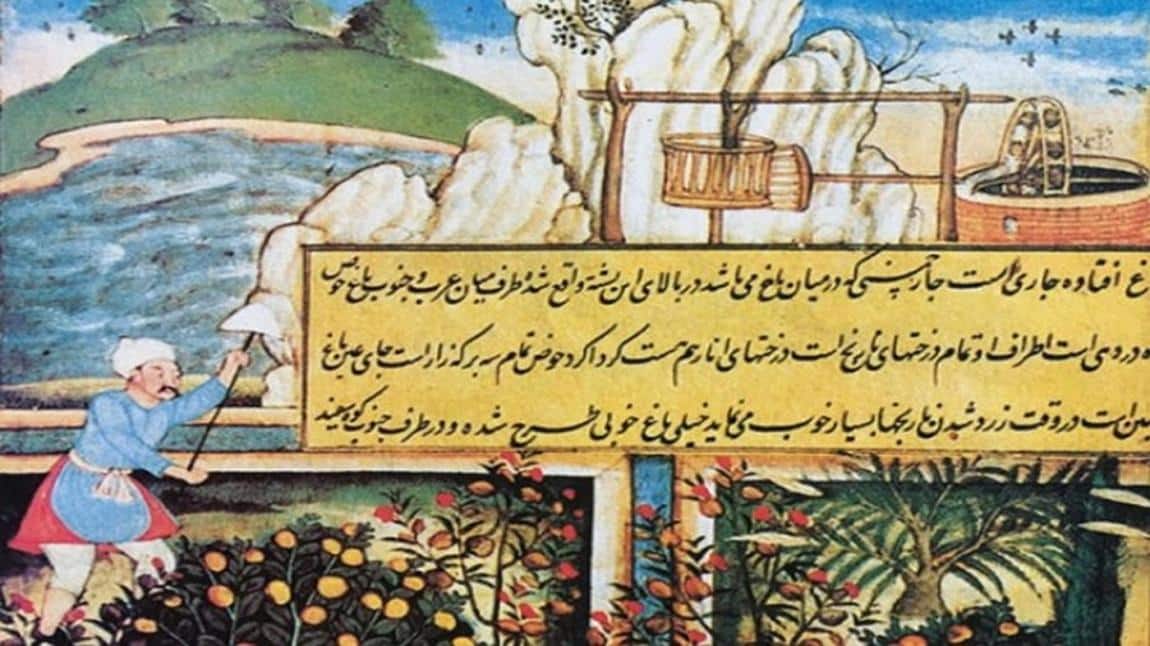 غ افتاده جاری است جار چمنی که در میان باغ می باشد در بالای این پشته واقع شده طرف میان غرب و جنوب باغ حوض
ه در دی است اطراف او تمام درختهای نارنج است درختهای انار هم هست گرداگرد حوض تمام سه برگه زار است جای عین باغ
مین است در وقت زرد شدن نارنجها بسیار خوب می نماید خیلی باغ خوبی طرح شده و در طرف جنوب کوه سفید